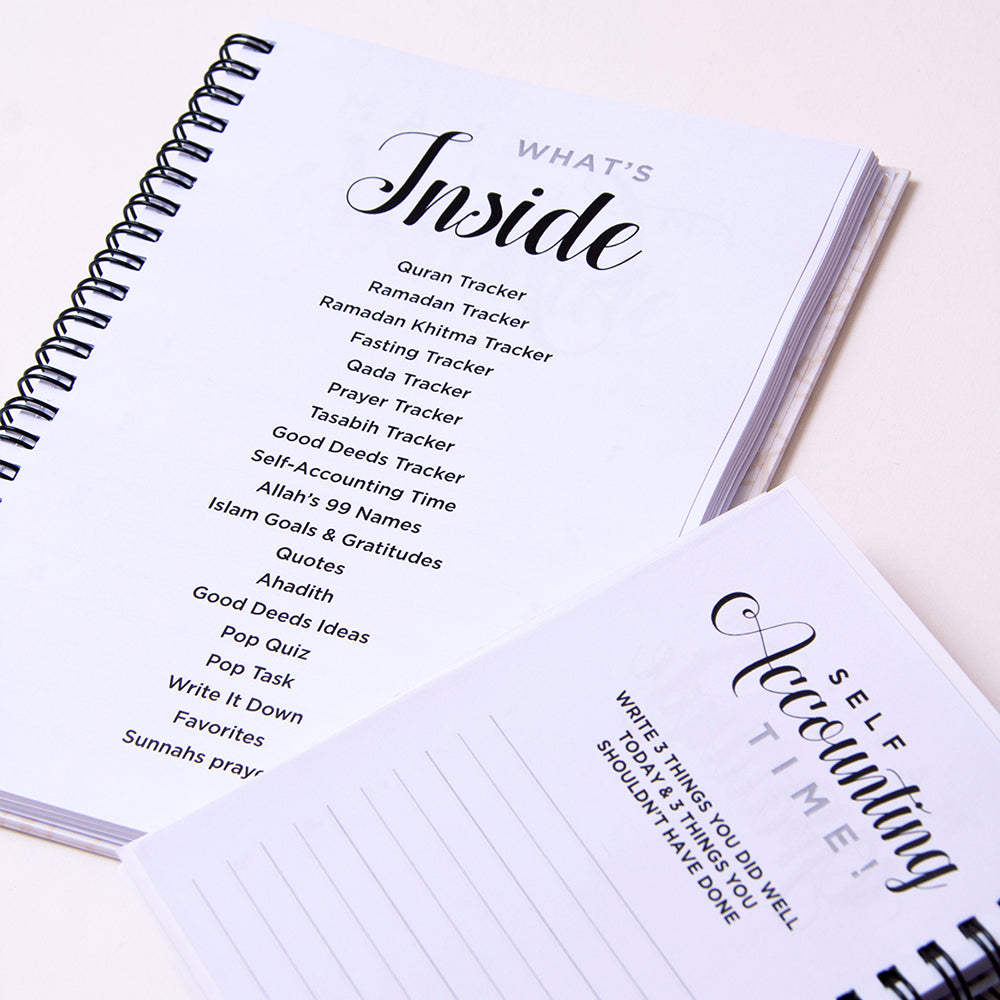 WHAT'S
Inside
Quran Tracker
Ramadan Tracker
Ramadan Khitma Tracker
Fasting Tracker
Qada Tracker
Prayer Tracker
Tasabih Tracker
Good Deeds Tracker
Self-Accounting Time
Allah's 99 Names
Islam Goals & Gratitudes
Quotes
Ahadith
Good Deeds Ideas
Pop Quiz
Pop Task
Write It Down
Favorites
Sunnahs
SELF
Accounting
TIME!
WRITE 3 THINGS YOU DID WELL
TODAY & 3 THINGS YOU
SHOULDN'T HAVE DONE